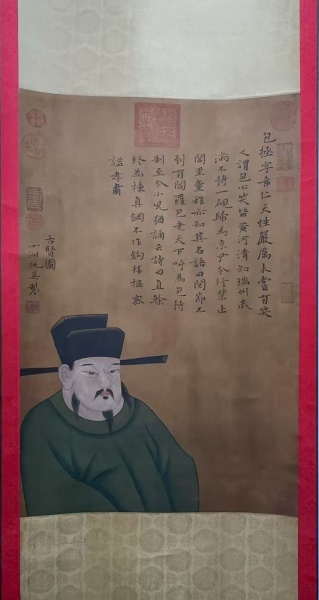 包拯字希仁天性嚴属未嘗有笑
人謂包公笑比黄河清知瑞州歲
滿不持一硯歸為京尹令行禁止
閭里童稚亦知其名語曰関節不
到有閻羅包老天下呼為包待
制至今小児猶誦云詩曰直幹
終為棟真鋼不作鈎
謚孝肅
古賢圖
十洲仇英製